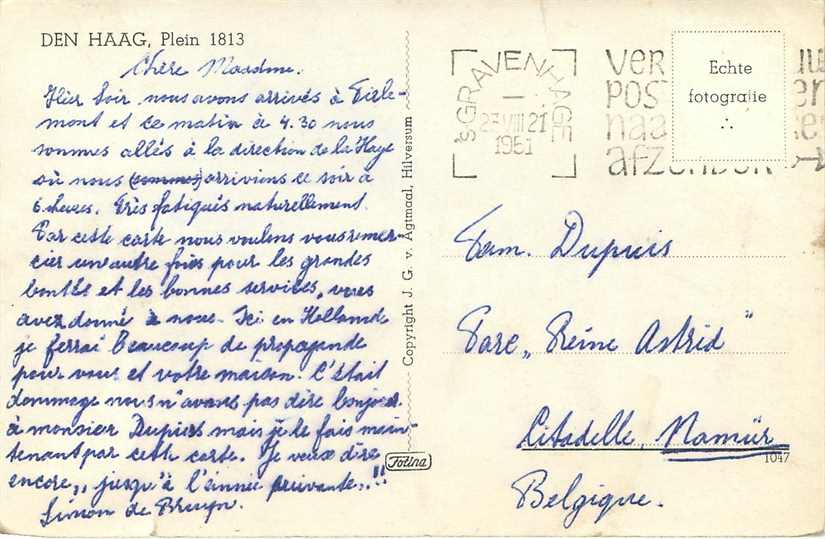 DEN HAAG, Plein 1813
Chère Maadme.
Hier soir nous avons arrivés à Tirle-
mont et ce matin à 4.30 nous
sommes allés à la direction de la Haye
où nous (sommes) arrivions ce soir à
6 heures. Très fatigués naturellement.
Par cette carte nous voulons vous remer-
cier un autre fois pour les grandes
bontés et les bonnes services, vous
avez donné à nous. Ici en Hollande
je ferrai beaucoup de propagande
pour vous et votre maison. C'était
dommage nous n'avons pas dire bonjour
à monsier Dupuis mais je le fais main-
tenant par cette carte. Je veux dire
encore „jusqu'à l'année suivante"!!
Simon de Bruyn.
Copyright J. G. v. Agtmaal, Hilversum
Fotina
's GRAVENHAGE
23 VIII 21
1951
ver
POS
naa
afzender
Echte
fotografie
Fam. Dupuis
Parc „Reine Astrid"
Citadelle, Namür
1047
Belgique.